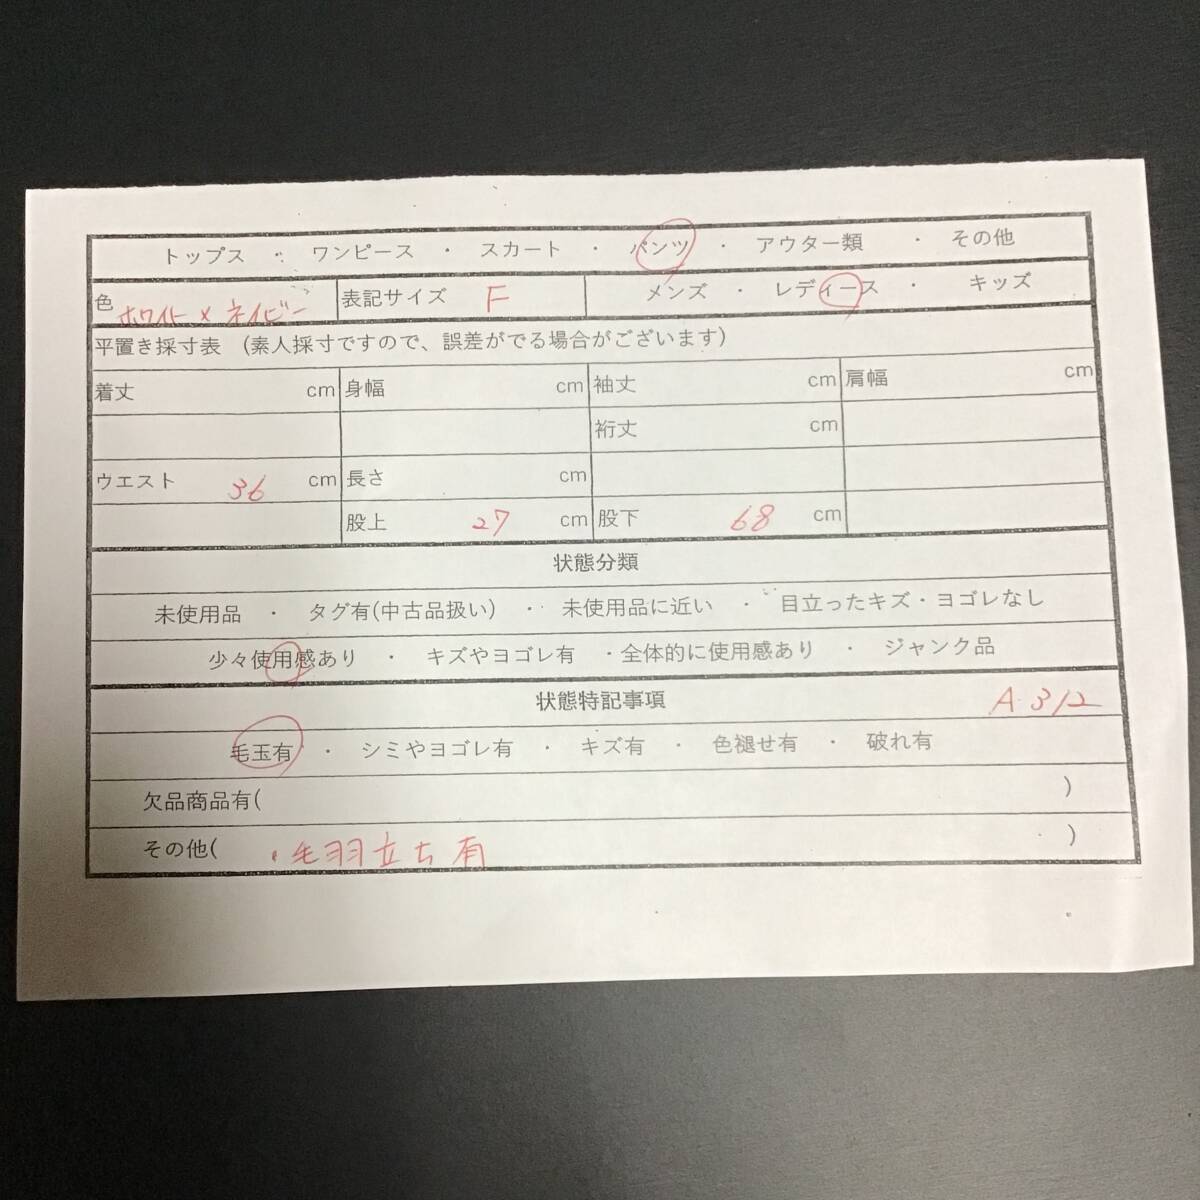 トップス ・ ワンピース ・ スカート ・ パンツ ・ アウター類 ・ その他
色 ホワイト×ネイビー 表記サイズ F メンズ ・ レディース ・ キッズ
平置き採寸表 (素人採寸ですので、誤差がでる場合がございます)
着丈 cm 身幅 cm 袖丈 cm 肩幅 cm
裄丈 cm
ウエスト 36 cm 長さ cm
股上 27 cm 股下 68 cm
状態分類
未使用品 ・ タグ有(中古品扱い) ・ 未使用品に近い ・ 目立ったキズ・ヨゴレなし
少々使用感あり ・ キズやヨゴレ有 ・全体的に使用感あり ・ ジャンク品
状態特記事項 A.312
毛玉有 ・ シミやヨゴレ有 ・ キズ有 ・ 色褪せ有 ・ 破れ有
欠品商品有( )
その他( ・毛羽立ち有 )